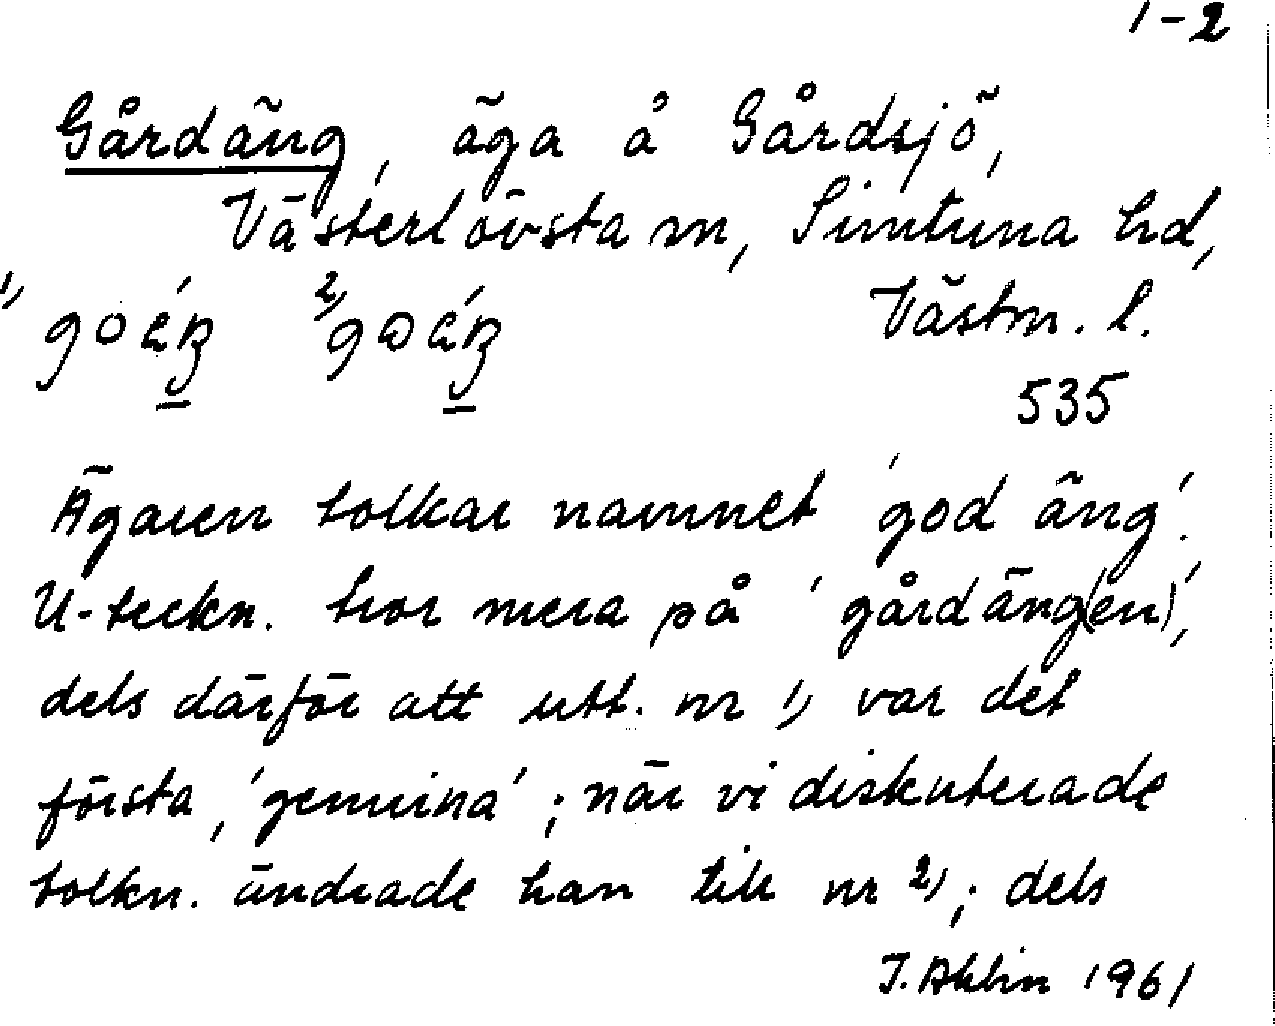 1-2
Gårdäng, äga å Gårdsjö,
Västerlövsta sn, Simtuna hd,
Västm. l.
535
Ägaren tolkar namnet 'god äng'.
U-teckn. tror mera på 'gårdäng(en)',
dels därför att utt. nr 1) var det
första, 'genuina'; när vi diskuterade
tolkn. ändrade han till nr 2); dels
J. Ahlin 1961